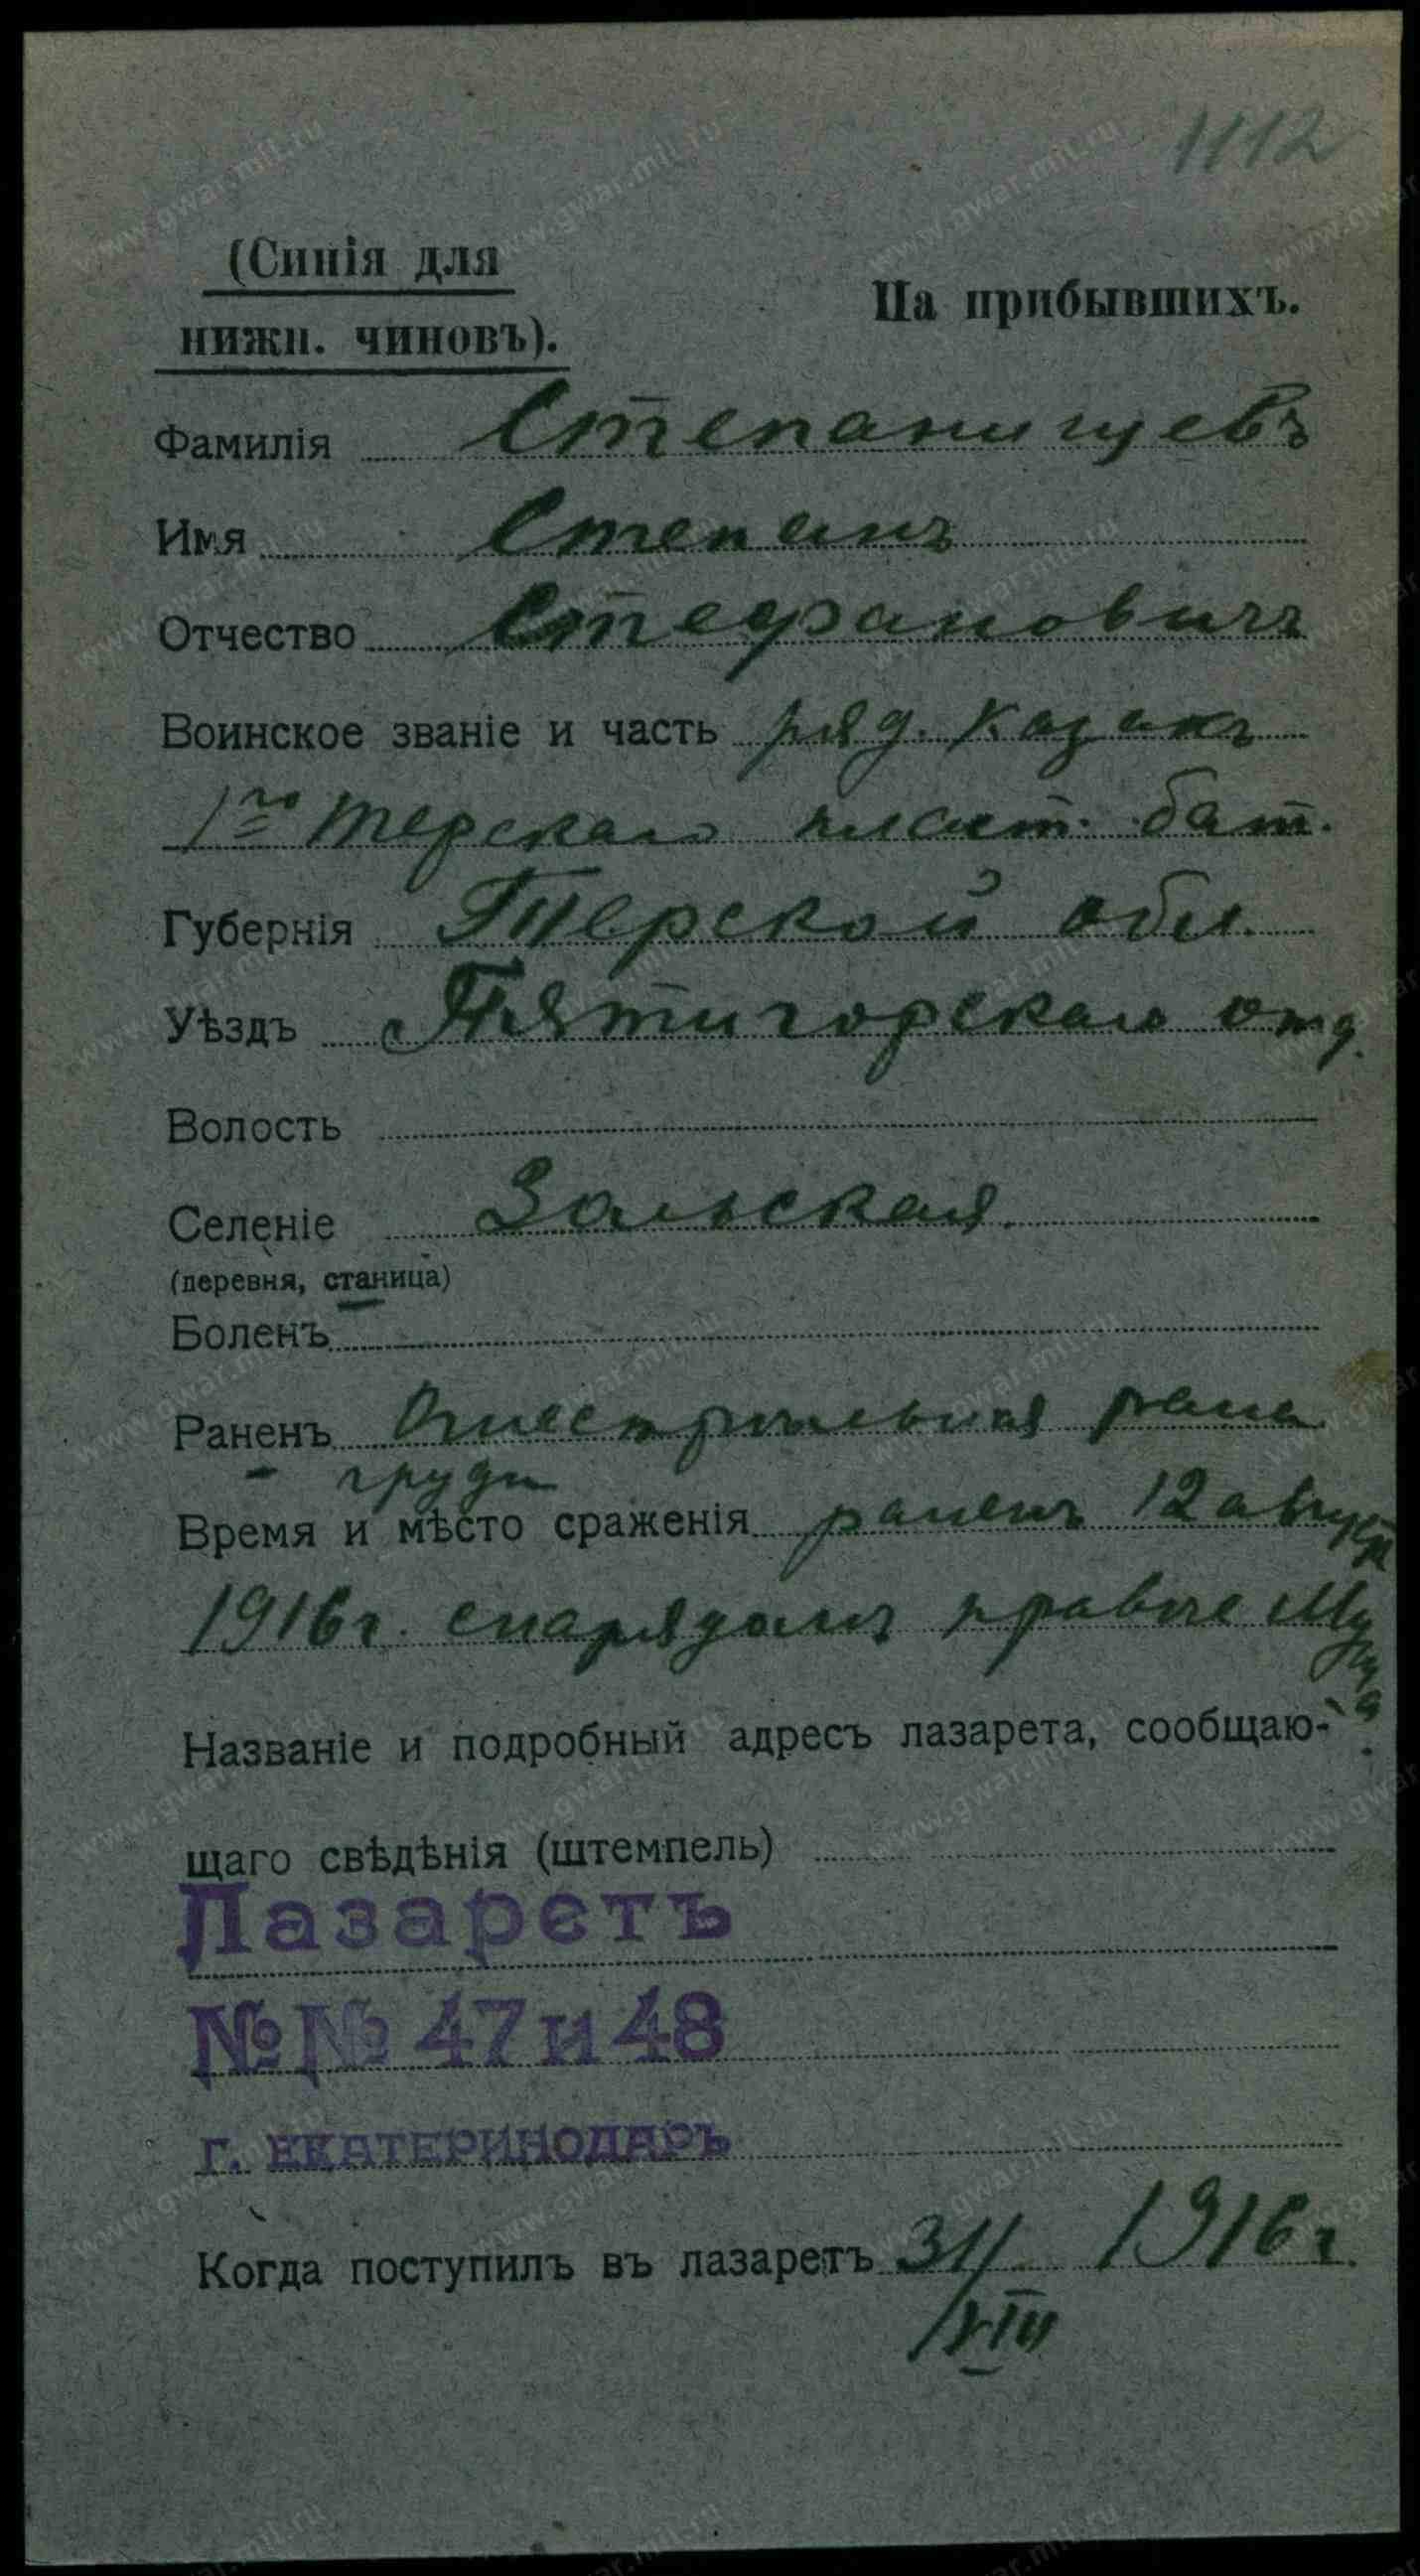 1112
(Синія для
нижн. чиновъ).
На прибывшихъ.
Фамилія Степанищевъ
Имя Степанъ
Отчество Стефановичъ
Воинское званіе и часть ряд. казакъ
1го Терскаго пласт. бат.
Губернія Терской обл.
Уѣздъ Пятигорскаго отд.
Волость
Селеніе Зольская
(деревня, станица)
Боленъ
Раненъ Огнестрѣльная рана
груди
Время и мѣсто сраженія раненъ 12 августа
1916г. снарядомъ правѣе
Названіе и подробный адресъ лазарета, сообщаю-
щаго свѣдѣнія (штемпель)
Лазаретъ
№№ 47 и 48
г. ЕКАТЕРИНОДАРЪ
Когда поступилъ въ лазаретъ 31/VIII 1916 г.